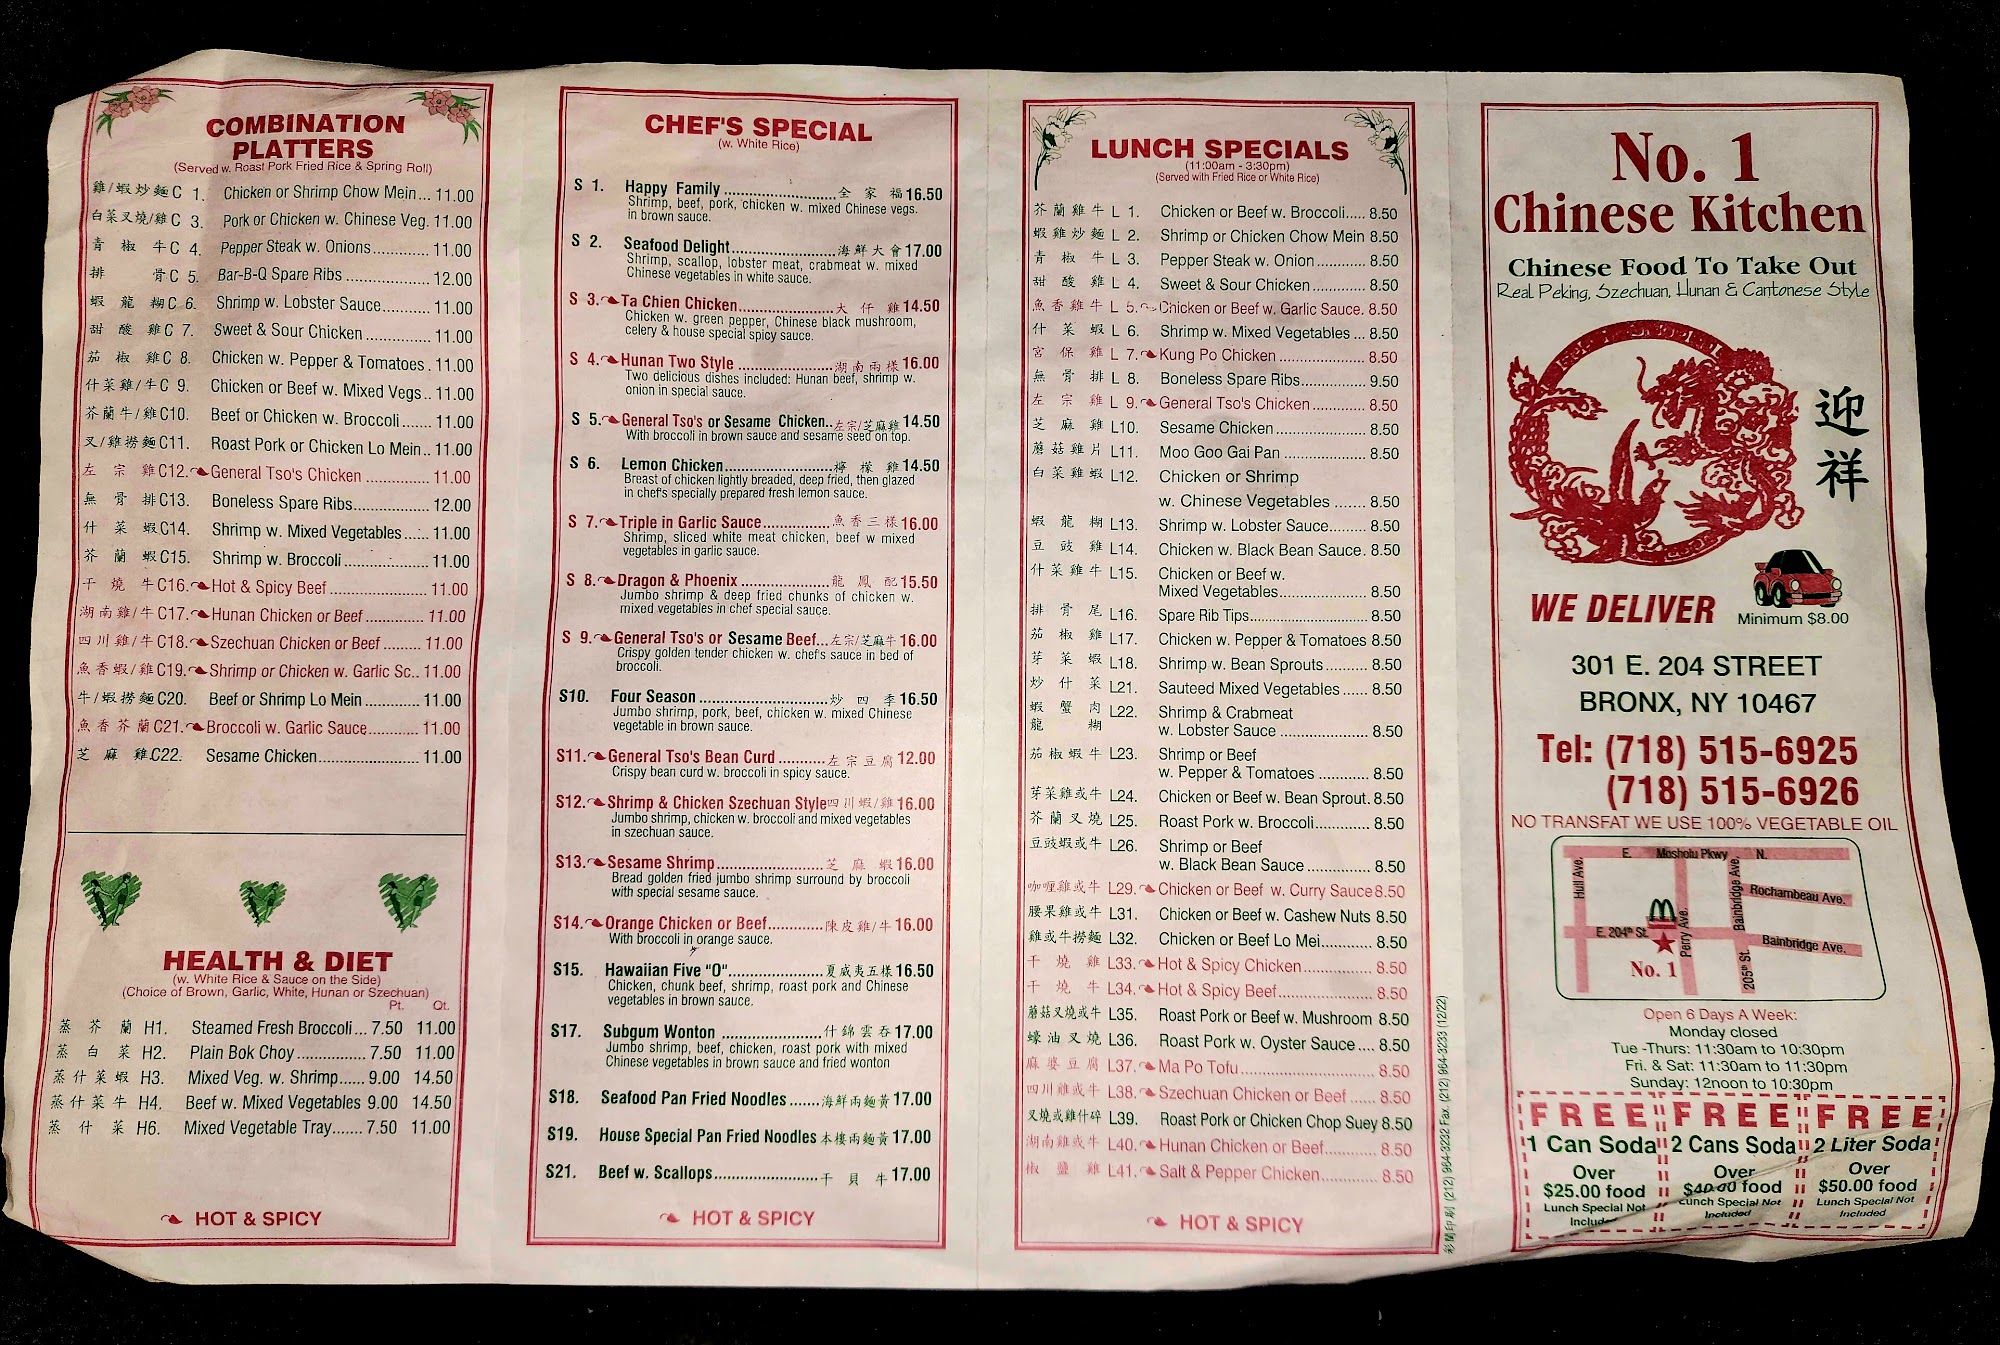 COMBINATION
PLATTERS
(Served w. Roast Pork Fried Rice & Spring Roll)
雞/蝦炒麵C 1. Chicken or Shrimp Chow Mein... 11.00
白菜叉燒/雞C 3. Pork or Chicken w. Chinese Veg. 11.00
青椒牛C 4. Pepper Steak w. Onions.............. 11.00
排骨C 5. Bar-B-Q Spare Ribs .................. 12.00
蝦龍糊C 6. Shrimp w. Lobster Sauce............ 11.00
甜酸雞C 7. Sweet & Sour Chicken ............... 11.00
茄椒雞C 8. Chicken w. Pepper & Tomatoes . 11.00
什菜雞/牛C 9. Chicken or Beef w. Mixed Vegs.. 11.00
芥蘭牛/雞C10. Beef or Chicken w. Broccoli...... 11.00
叉/雞撈麵C11. Roast Pork or Chicken Lo Mein.. 11.00
左宗雞C12. General Tso's Chicken .............. 11.00
無骨排C13. Boneless Spare Ribs................. 12.00
什菜蝦C14. Shrimp w. Mixed Vegetables...... 11.00
芥蘭蝦C15. Shrimp w. Broccoli ................... 11.00
干燒牛C16. Hot & Spicy Beef .................... 11.00
湖南雞/牛C17. Hunan Chicken or Beef ............. 11.00
四川雞/牛C18. Szechuan Chicken or Beef ......... 11.00
魚香蝦/雞C19. Shrimp or Chicken w. Garlic Sc.. 11.00
牛/蝦撈麵C20. Beef or Shrimp Lo Mein ............ 11.00
魚香芥蘭C21. Broccoli w. Garlic Sauce............ 11.00
芝麻雞C22. Sesame Chicken....................... 11.00
HEALTH & DIET
(w. White Rice & Sauce on the Side)
(Choice of Brown, Garlic, White, Hunan or Szechuan)
Pt. Qt.
蒸芥蘭 H1. Steamed Fresh Broccoli... 7.50 11.00
蒸白菜 H2. Plain Bok Choy................ 7.50 11.00
蒸什菜蝦 H3. Mixed Veg. w. Shrimp...... 9.00 14.50
蒸什菜牛 H4. Beef w. Mixed Vegetables 9.00 14.50
蒸什菜 H6. Mixed Vegetable Tray....... 7.50 11.00
HOT & SPICY
CHEF'S SPECIAL
(w. White Rice)
S 1. Happy Family ......................全家福16.50
Shrimp, beef, pork, chicken w. mixed Chinese vegs.
in brown sauce.
S 2. Seafood Delight.....................海鮮大會17.00
Shrimp, scallop, lobster meat, crabmeat w. mixed
Chinese vegetables in white sauce.
S 3. Ta Chien Chicken...................大仟雞14.50
Chicken w. green pepper, Chinese black mushroom,
celery & house special spicy sauce.
S 4. Hunan Two Style ...................湖南兩樣16.00
Two delicious dishes included: Hunan beef, shrimp w.
onion in special sauce.
S 5. General Tso's or Sesame Chicken..左宗/芝麻雞14.50
With broccoli in brown sauce and sesame seed on top.
S 6. Lemon Chicken......................檸檬雞14.50
Breast of chicken lightly breaded, deep fried, then glazed
in chef's specially prepared fresh lemon sauce.
S 7. Triple in Garlic Sauce..............魚香三樣16.00
Shrimp, sliced white meat chicken, beef w mixed
vegetables in garlic sauce.
S 8. Dragon & Phoenix ..................龍鳳配15.50
Jumbo shrimp & deep fried chunks of chicken w.
mixed vegetables in chef special sauce.
S 9. General Tso's or Sesame Beef...左宗/芝麻牛16.00
Crispy golden tender chicken w. chef's sauce in bed of
broccoli.
S10. Four Season ..........................炒四季16.50
Jumbo shrimp, pork, beef, chicken w. mixed Chinese
vegetable in brown sauce.
S11. General Tso's Bean Curd ..........左宗豆腐12.00
Crispy bean curd w. broccoli in spicy sauce.
S12. Shrimp & Chicken Szechuan Style四川蝦/雞16.00
Jumbo shrimp, chicken w. broccoli and mixed vegetables
in szechuan sauce.
S13. Sesame Shrimp.......................芝麻蝦16.00
Bread golden fried jumbo shrimp surround by broccoli
with special sesame sauce.
S14. Orange Chicken or Beef............陳皮雞/牛16.00
With broccoli in orange sauce.
S15. Hawaiian Five "O"....................夏威夷五樣16.50
Chicken, chunk beef, shrimp, roast pork and Chinese
vegetables in brown sauce.
S17. Subgum Wonton .....................什錦雲吞17.00
Jumbo shrimp, beef, chicken, roast pork with mixed
Chinese vegetables in brown sauce and fried wonton
S18. Seafood Pan Fried Noodles .......海鮮兩麵黃17.00
S19. House Special Pan Fried Noodles 本樓兩麵黃17.00
S21. Beef w. Scallops.......................干貝牛17.00
HOT & SPICY
LUNCH SPECIALS
(11:00am - 3:30pm)
(Served with Fried Rice or White Rice)
芥蘭雞牛 L 1. Chicken or Beef w. Broccoli..... 8.50
蝦雞炒麵 L 2. Shrimp or Chicken Chow Mein 8.50
青椒牛 L 3. Pepper Steak w. Onion........... 8.50
甜酸雞 L 4. Sweet & Sour Chicken ............ 8.50
魚香雞牛 L 5. Chicken or Beef w. Garlic Sauce. 8.50
什菜蝦 L 6. Shrimp w. Mixed Vegetables ... 8.50
宮保雞 L 7. Kung Po Chicken .................. 8.50
無骨排 L 8. Boneless Spare Ribs.............. 9.50
左宗雞 L 9. General Tso's Chicken ............ 8.50
芝麻雞 L10. Sesame Chicken................... 8.50
蘑菇雞片 L11. Moo Goo Gai Pan ................. 8.50
白菜雞蝦 L12. Chicken or Shrimp
w. Chinese Vegetables ......... 8.50
蝦龍糊 L13. Shrimp w. Lobster Sauce......... 8.50
豆豉雞 L14. Chicken w. Black Bean Sauce. 8.50
什菜雞牛 L15. Chicken or Beef w.
Mixed Vegetables.................. 8.50
排骨尾 L16. Spare Rib Tips........................ 8.50
茄椒雞 L17. Chicken w. Pepper & Tomatoes 8.50
芽菜蝦 L18. Shrimp w. Bean Sprouts.......... 8.50
炒什菜 L21. Sauteed Mixed Vegetables ...... 8.50
蝦蟹肉
龍糊 L22. Shrimp & Crabmeat
w. Lobster Sauce .................. 8.50
茄椒蝦牛 L23. Shrimp or Beef
w. Pepper & Tomatoes ............ 8.50
芽菜雞或牛 L24. Chicken or Beef w. Bean Sprout. 8.50
芥蘭叉燒 L25. Roast Pork w. Broccoli............ 8.50
豆豉蝦或牛 L26. Shrimp or Beef
w. Black Bean Sauce ............ 8.50
咖喱雞或牛 L29. Chicken or Beef w. Curry Sauce 8.50
腰果雞或牛 L31. Chicken or Beef w. Cashew Nuts 8.50
雞或牛撈麵 L32. Chicken or Beef Lo Mei............ 8.50
干燒雞 L33. Hot & Spicy Chicken............... 8.50
干燒牛 L34. Hot & Spicy Beef................... 8.50
蘑菇叉燒或牛 L35. Roast Pork or Beef w. Mushroom 8.50
蠔油叉燒 L36. Roast Pork w. Oyster Sauce .... 8.50
麻婆豆腐 L37. Ma Po Tofu .......................... 8.50
四川雞或牛 L38. Szechuan Chicken or Beef ...... 8.50
叉燒或雞什碎 L39. Roast Pork or Chicken Chop Suey 8.50
湖南雞或牛 L40. Hunan Chicken or Beef........... 8.50
椒鹽雞 L41. Salt & Pepper Chicken............. 8.50
HOT & SPICY
(212) 964-3232 Fax. (212) 964-3233 (12/22)
No. 1
Chinese Kitchen
Chinese Food To Take Out
Real Peking, Szechuan, Hunan & Cantonese Style
迎祥
WE DELIVER
Minimum $8.00
301 E. 204 STREET
BRONX, NY 10467
Tel: (718) 515-6925
(718) 515-6926
NO TRANSFAT WE USE 100% VEGETABLE OIL
E. Mosholu Pkwy N.
Hull Ave.
Bainbridge Ave.
Rochambeau Ave.
E. 204th St.
Perry Ave.
Bainbridge Ave.
205th St.
No. 1
Open 6 Days A Week:
Monday closed
Tue -Thurs: 11:30am to 10:30pm
Fri. & Sat: 11:30am to 11:30pm
Sunday: 12noon to 10:30pm
FREE FREE FREE
1 Can Soda 2 Cans Soda 2 Liter Soda
Over Over Over
$25.00 food $40.00 food $50.00 food
Lunch Special Not Lunch Special Not Lunch Special Not
Included Included Included